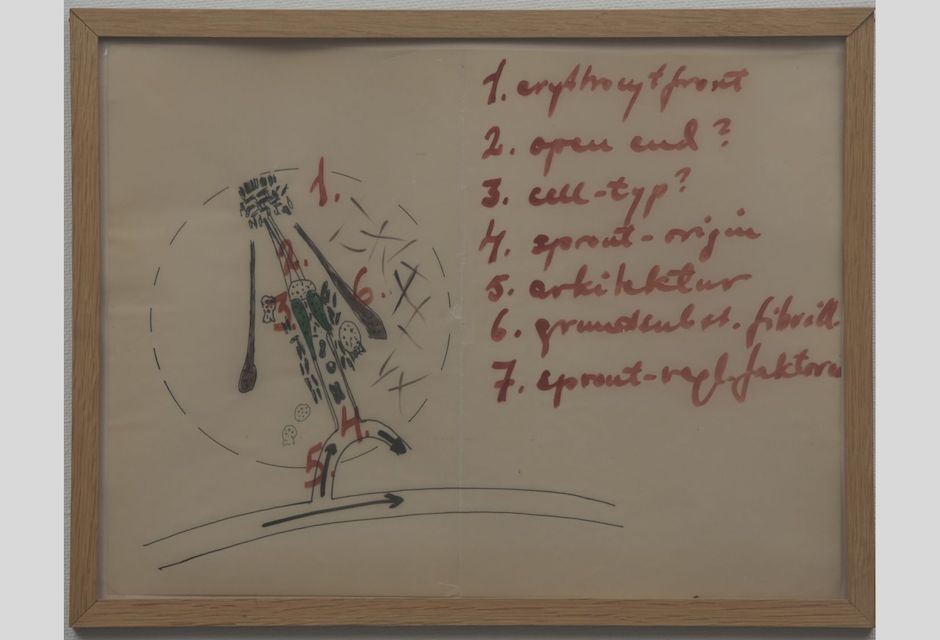 1. erythrocytfront
2. open end?
3. cell-typ?
4. sprout-origin
5. arkitektur
6. grundsubst. fibrill.
7. sprout-regl.faktorer
1.
2.
3.
6.
4.
5.